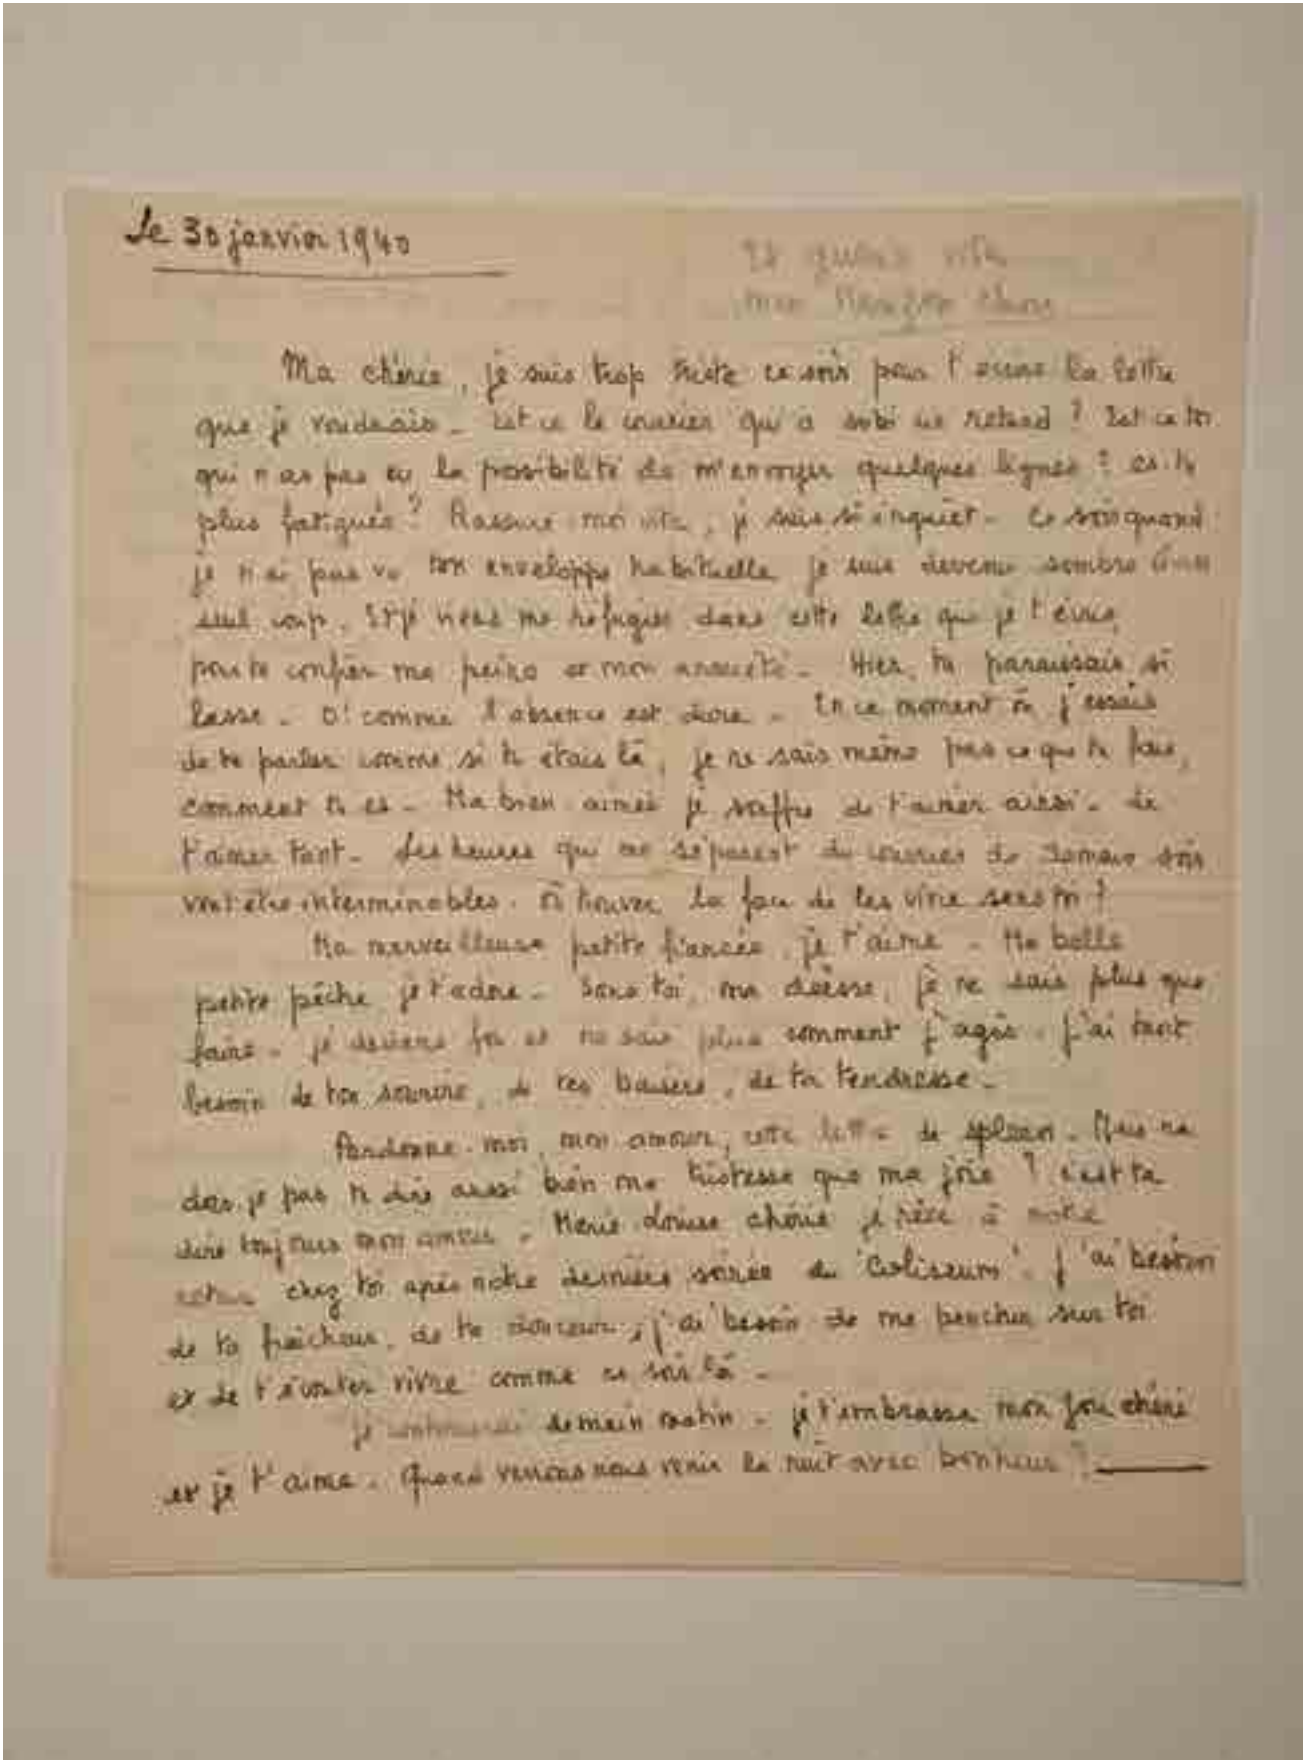 Le 30 janvier 1940
Et guéris vite
mon
Ma chérie, je suis trop triste ce soir pour t'écrire la lettre
que je voudrais _ Est ce le courrier qui a subi un retard ? Est ce toi
qui n'as pas eu la possibilité de m'envoyer quelques lignes ? es-tu
plus fatiguée ? Rassure-moi vite, je suis si inquiet _ Ce soir quand
je n'ai pas vu ton enveloppe habituelle je suis devenu sombre d'un
seul coup. Et je viens me réfugier dans cette lettre que je t'écris,
pour te confier ma peine et mon anxiété _ Hier, tu paraissais si
lasse _ O! comme l'absence est dure _ En ce moment où j'essaie
de te parler comme si tu étais là, je ne sais même pas ce que tu fais,
comment tu es _ Ma bien aimée je souffre de t'aimer ainsi _ de
t'aimer tant _ Les heures qui me séparent du courrier de demain soir
vont être interminables. Où trouver la force de les vivre sans toi ?
Ma merveilleuse petite fiancée, je t'aime _ Ma belle
petite pêche je t'adore _ Sans toi, ma déesse, je ne sais plus que
faire _ je deviens fou et ne sais plus comment j'agis. J'ai tant
besoin de ton sourire, de tes baisers, de ta tendresse _
Pardonne-moi, mon amour, cette lettre de spleen _ Mais ne
dois-je pas te dire aussi bien ma tristesse que ma joie ? C'est te
dire toujours mon amour _ Marie Louise chérie je rêve à notre
retour chez toi après notre dernière soirée au "Coliseum". J'ai besoin
de ta fraîcheur, de ta douceur, j'ai besoin de me pencher sur toi
et de t'écouter vivre comme ce soir là _
je continuerai demain matin _ je t'embrasse mon fou chéri
et je t'aime. Quand verrons nous venir la nuit avec bonheur ?